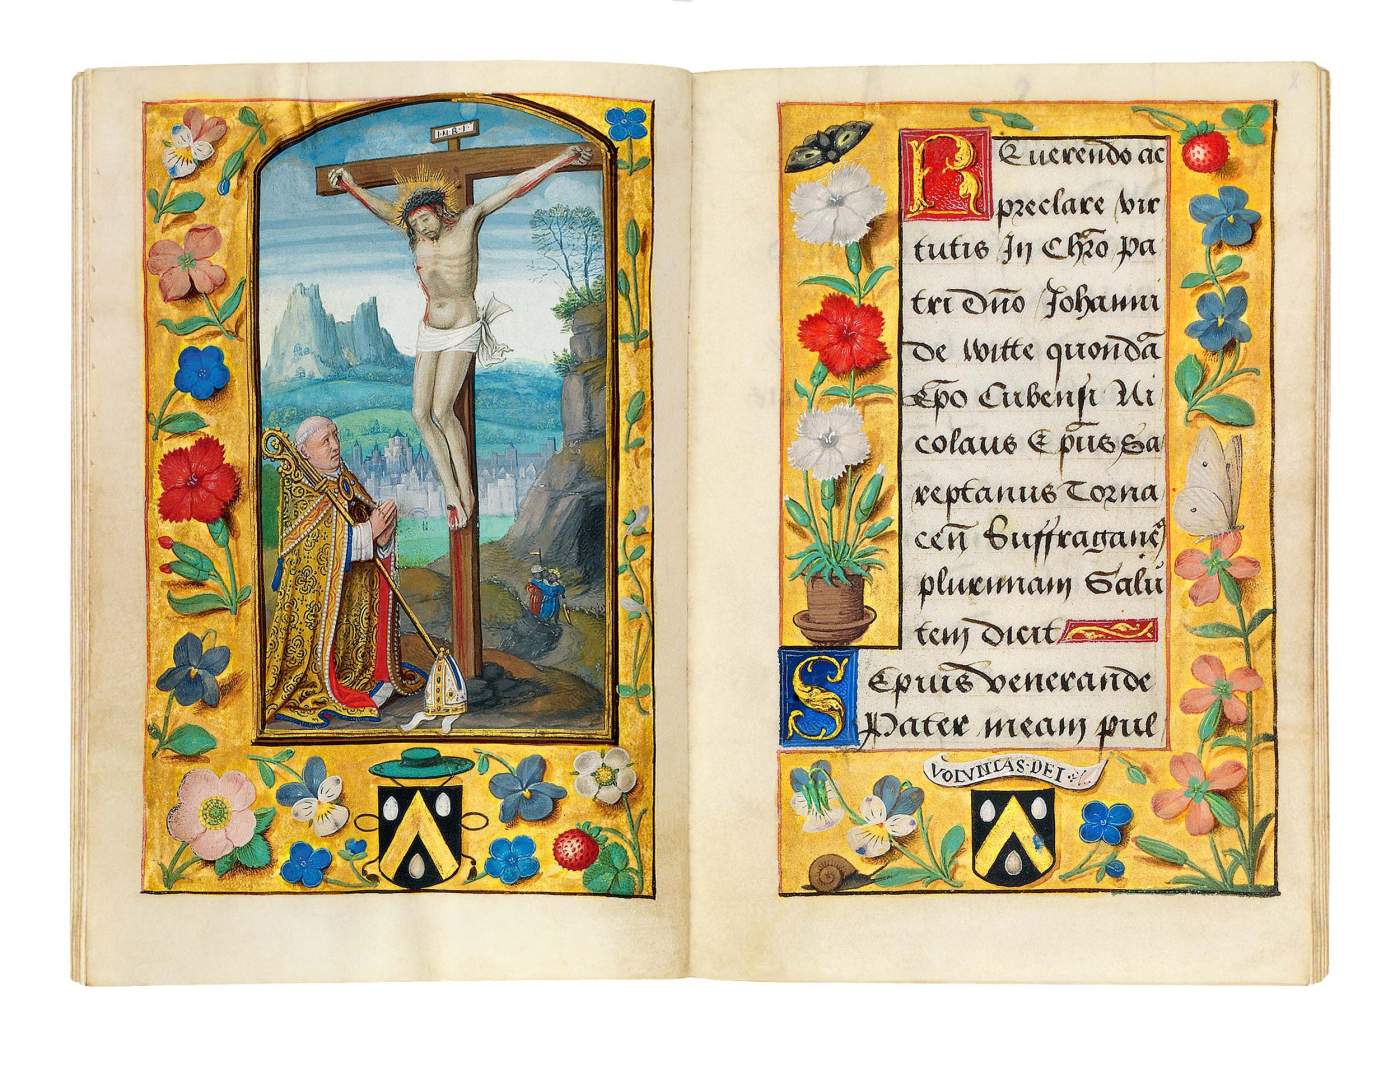 I·N·R·I
REuerendo ac
preclare vir
tutis In Chr̄o pa
tri dn̄o Johanni
de Witte quondā
Ep̄o Cubensi Ni
colaus Ep̄us Sa
reptanus Torna
ceñ Suffraganeꝯ
plurimam Salu
tem dicit
SEpius venerande
Pater meam pul
VOLVNTAS·DEI